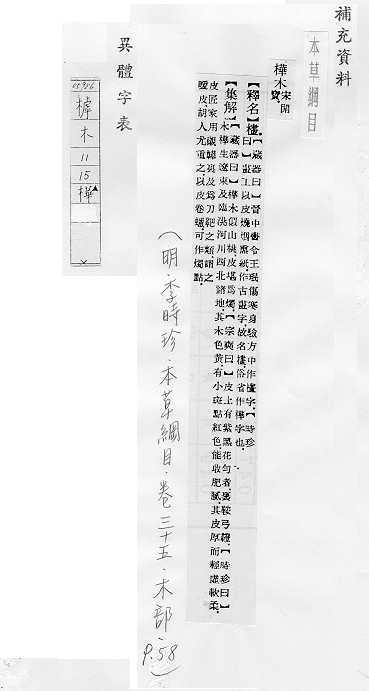 補充資料
本草綱目
樺木 宋開寶
【釋名】樓【藏器曰】晉中書令王珉傷寒身驗方中作樓字.【時珍
曰】畫工以皮燒烟熏紙.作古畫字.故名樓.俗省作樺字也.
【集解】【藏器曰】樺木似山桃.皮堪爲燭.【宗奭曰】皮上有紫黑花勻者.裹鞍弓鐙.【時珍曰】
木樺生遼東及臨洮河州西北諸地.其木色黃.有小斑點紅色.能收肥膩.其皮厚而輕虛軟柔.
皮匠家用襯鞾裏.及爲刀靶之類.謂之
暖皮.胡人尤重之.以皮卷蠟.可作燭點.
(明.李時珍.本草綱目.卷三十五.木部 P.58)
異體字表
木
11
15
樺